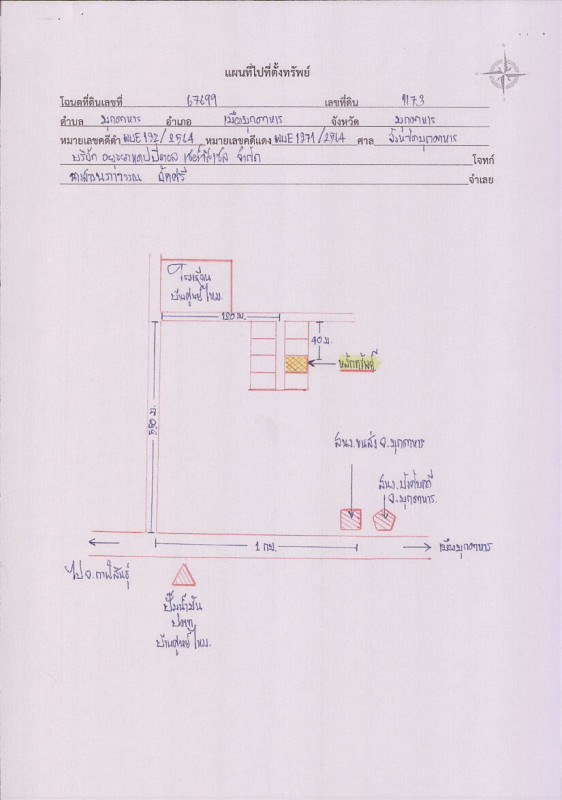 แผนที่ไปที่ตั้งทรัพย์
โฉนดที่ดินเลขที่ 67699 เลขที่ดิน 1173
ตำบล มุกดาหาร อำเภอ เมืองมุกดาหาร จังหวัด มุกดาหาร
หมายเลขคดีดำ ผบE 192/2564 หมายเลขคดีแดง ผบE 1271/2564 ศาล จังหวัดมุกดาหาร
บริษัท อยุธยาแคปปิตอล เซอร์วิสเซส จำกัด โจทก์
จำเลย
โรงเรียน
บ้านศูนย์ไหม
120 ม.
40 ม.
หลักทรัพย์
550 ม.
สนง.ขนส่ง จ.มุกดาหาร
สนง.บังคับคดี
จ.มุกดาหาร
1 กม.
เมืองมุกดาหาร
ไป จ.กาฬสินธุ์
ปั๊มน้ำมัน
ปตท.
บ้านศูนย์ไหม.